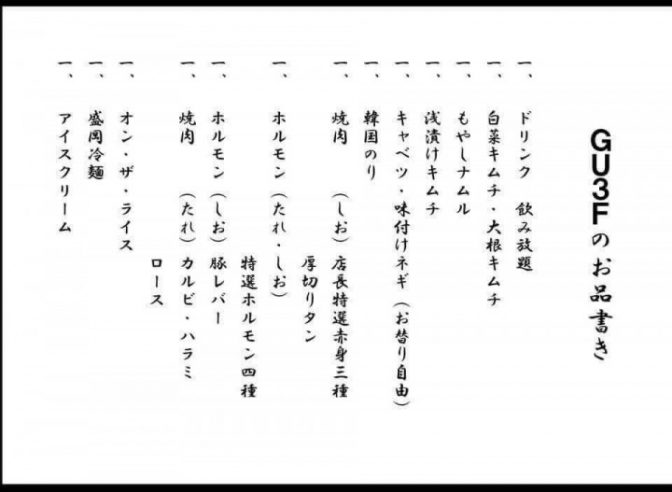 GU3Fのお品書き
一、ドリンク 飲み放題
一、白菜キムチ・大根キムチ
一、もやしナムル
一、浅漬けキムチ
一、キャベツ・味付けネギ(お替り自由)
一、韓国のり
一、焼肉 (しお) 店長特選赤身三種
厚切りタン
一、ホルモン(たれ・しお)
特選ホルモン四種
一、ホルモン(しお) 豚レバー
一、焼肉 (たれ) カルビ・ハラミ
ロース
一、オン・ザ・ライス
一、盛岡冷麺
一、アイスクリーム